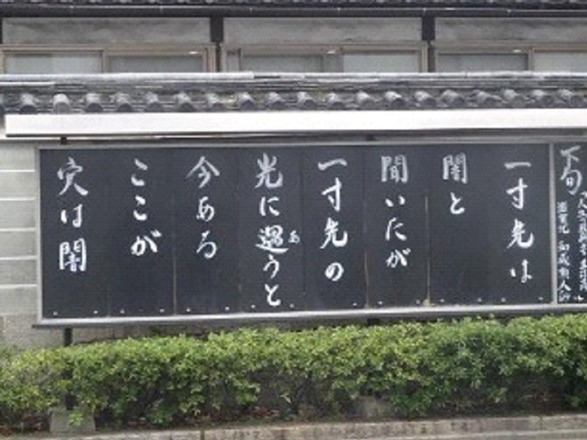 下旬
一寸先は
闇と
聞いたが
一寸先の
光に遇うと
あ
今ある
ここが
穴は闇